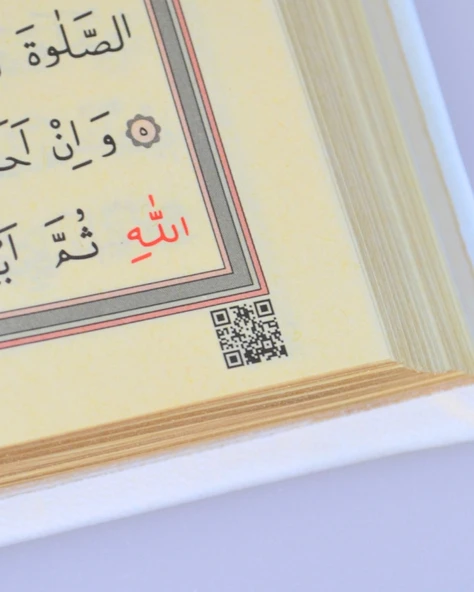 الصَّلٰوةَ
۝٥ وَاِنْ اَحَ
اللّٰهِ ثُمَّ اَبْ